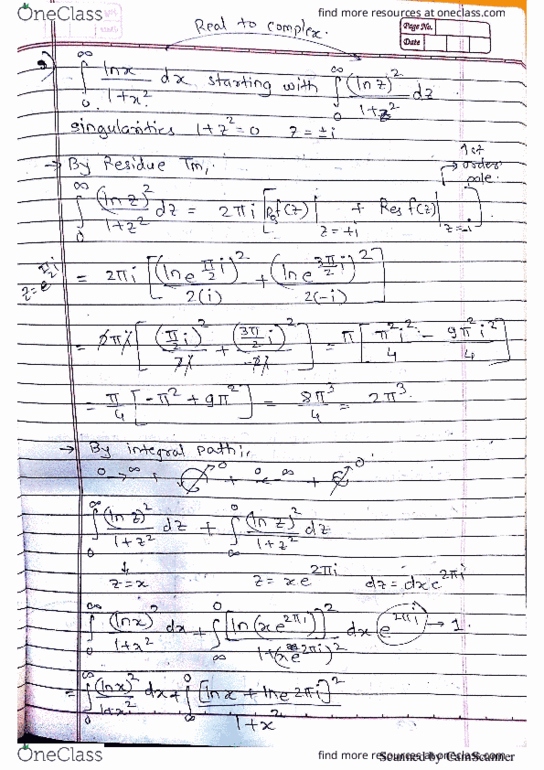 OneClass
find more resources at oneclass.com
Real to complex.
Page No.
Date
∫₀^∞ lnx/(1+x²) dx starting with ∫₀^∞ (ln z)²/(1+z²) dz
singularities 1+z²=0 z=±i
→ By Residue Tm,
1st order pole.
∫₀^∞ (ln z)²/(1+z²) dz = 2πi [Res f(z)|z=+i + Res f(z)|z=-i]
z=e^(π/2 i)
= 2πi [(ln e^(π/2 i))²/2(i) + (ln e^(3π/2 i))²/2(-i)]
= 2πi [(π/2 i)²/2i + (3π/2 i)²/-2i] = π [π²i²/4 - 9π²i²/4]
= π/4 [-π² + 9π²] = 8π³/4 = 2π³
→ By integral path;
0 → ∞ + 0 + 0 ← ∞ + 0
∫₀^∞ (ln z)²/(1+z²) dz + ∫_∞^0 (ln z)²/(1+z²) dz
↓
z=x z=xe^(2πi) dz=dxe^(2πi)
∫₀^∞ (lnx)²/(1+x²) dx + ∫_∞^0 [ln(xe^(2πi))]²/(1+(xe^(2πi))²) dx e^(2πi) → 1
= ∫₀^∞ (lnx)²/(1+x²) dx + ∫_∞^0 [lnx + lne^(2πi)]²/(1+x²)
OneClass
find more resources at oneclass.com
Scanned by CamScanner